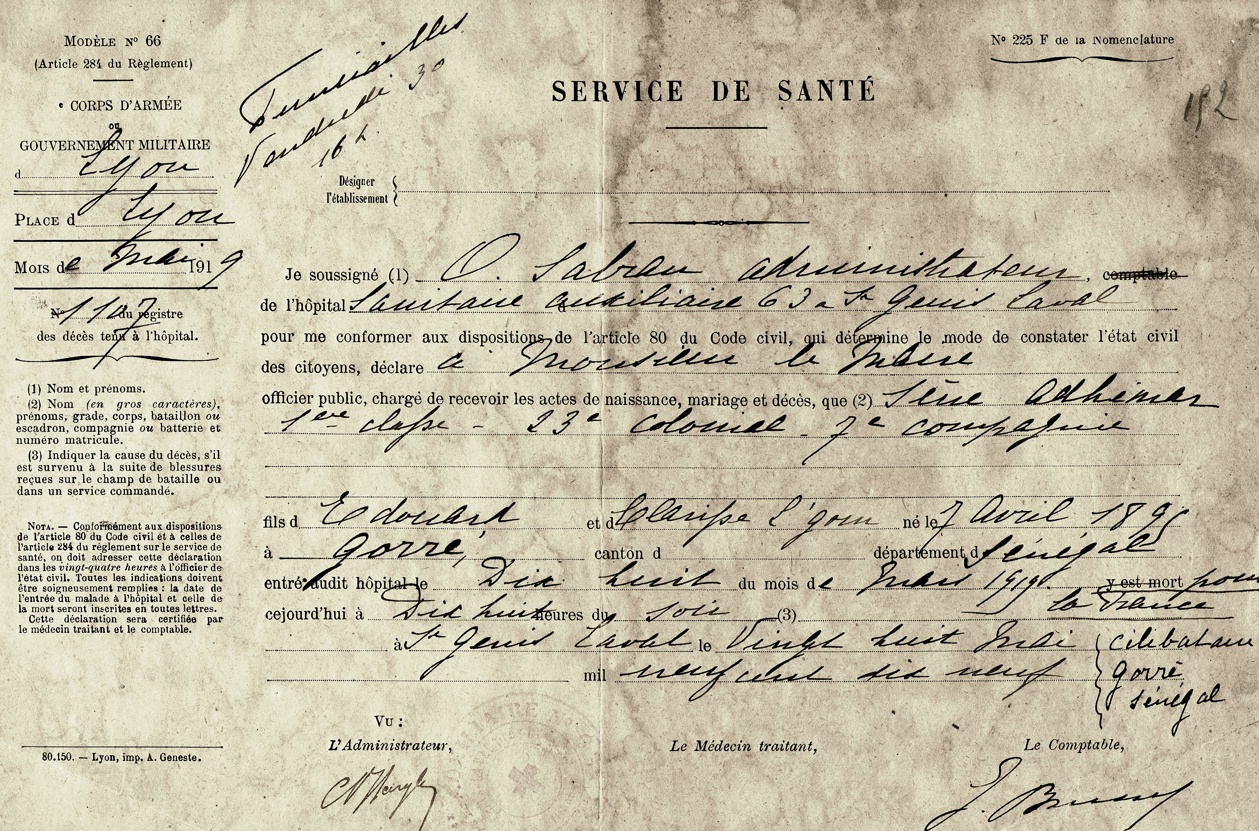 MODÈLE N° 66
(Article 284 du Règlement)
e CORPS D'ARMÉE
ou
GOUVERNEMENT MILITAIRE
d Lyon
PLACE d Lyon
MOIS de Mai 1919
N° 1107 du registre
des décès tenu à l'hôpital.
(1) Nom et prénoms.
(2) Nom (en gros caractères),
prénoms, grade, corps, bataillon ou
escadron, compagnie ou batterie et
numéro matricule.
(3) Indiquer la cause du décès, s'il
est survenu à la suite de blessures
reçues sur le champ de bataille ou
dans un service commandé.
NOTA. — Conformément aux dispositions
de l'article 80 du Code civil et à celles de
l'article 284 du règlement sur le service de
santé, on doit adresser cette déclaration
dans les vingt-quatre heures à l'officier de
l'état civil. Toutes les indications doivent
être soigneusement remplies : la date de
l'entrée du malade à l'hôpital et celle de
la mort seront inscrites en toutes lettres.
Cette déclaration sera certifiée par
le médecin traitant et le comptable.
80.150. — Lyon, imp. A. Geneste.
Funérailles
Vendredi 30
16 h
N° 225 F de la Nomenclature
192
SERVICE DE SANTÉ
Désigner
l'établissement
Je soussigné (1) O. Sabran administrateur, comptable
de l'hôpital Sanitaire auxiliaire 63 a St Genis Laval
pour me conformer aux dispositions de l'article 80 du Code civil, qui détermine le mode de constater l'état civil
des citoyens, déclare à Monsieur le Maire
officier public, chargé de recevoir les actes de naissance, mariage et décès, que (2) Sène Adhémar
classe - 23e Colonial - 7e compagnie
fils d Edouard et d né le 7 Avril 189
à Gorré, canton d département d Sénégal
entré audit hôpital le Dix huit du mois de Mars 1919 y est mort pour
la France
cejourd'hui à Dix huit heures du soir (3)
à St Genis Laval le Vingt huit Mai
célibataire
mil neuf cent dix neuf
Gorré
Sénégal
VU :
L'Administrateur,
Le Médecin traitant,
Le Comptable,